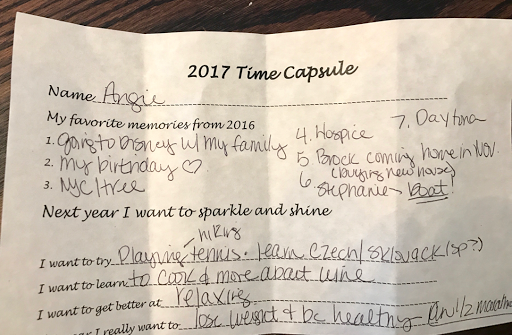 2017 Time Capsule
Name Angie
My favorite memories from 2016
1. going to Disney w/ my family
2. my birthday ♡
3. NYC/tree
4. Hospice
5. Brock coming home in Nov.
(buying new house)
6. Stephanie - Boat!
7. Daytona
Next year I want to sparkle and shine
hiking
I want to try Playing tennis. learn Czech/Slovack (sp?)
I want to learn to cook & more about wine
I want to get better at relaxing
I really want to lose weight & be healthy - Run 1/2 marathon